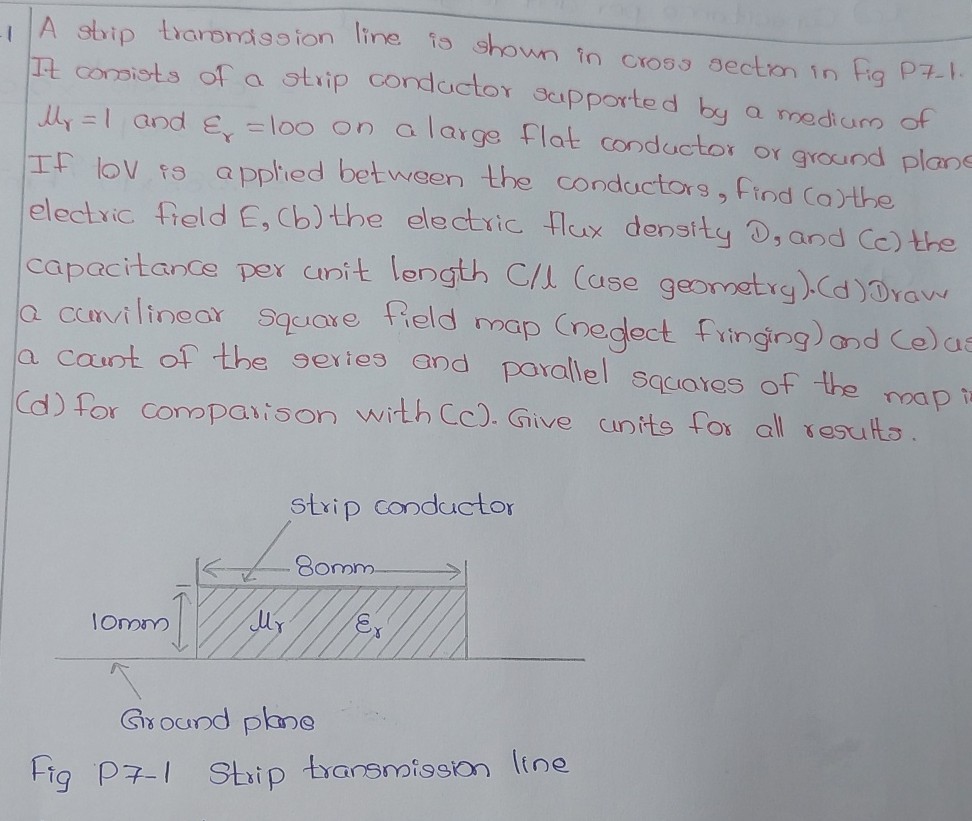 1 A strip transmission line is shown in cross section in fig P7-1.
It consists of a strip conductor supported by a medium of
μr = 1 and εr = 100 on a large flat conductor or ground plane
If 10V is applied between the conductors, find (a) the
electric field E, (b) the electric flux density D, and (c) the
capacitance per unit length C/l (use geometry). (d) Draw
a curvilinear square field map (neglect fringing) and (e) us
a count of the series and parallel squares of the map i
(d) for comparison with (c). Give units for all results.
strip conductor
80mm
10mm μr εr
Ground plane
Fig P7-1 Strip transmission line